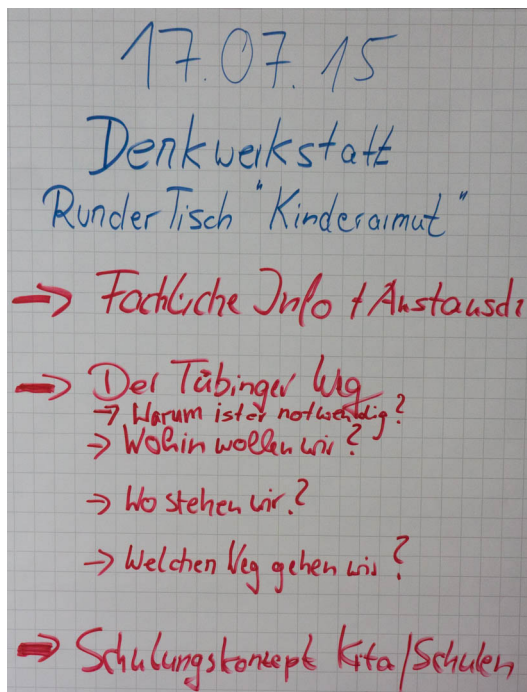 17.07.15
Denkwerkstatt
Runder Tisch "Kinderarmut"
→ Fachliche Info + Austausch
→ Der Tübinger Weg
→ Warum ist er notwendig?
→ Wohin wollen wir?
→ Wo stehen wir?
→ Welchen Weg gehen wir?
→ Schulungskonzept Kita/Schulen